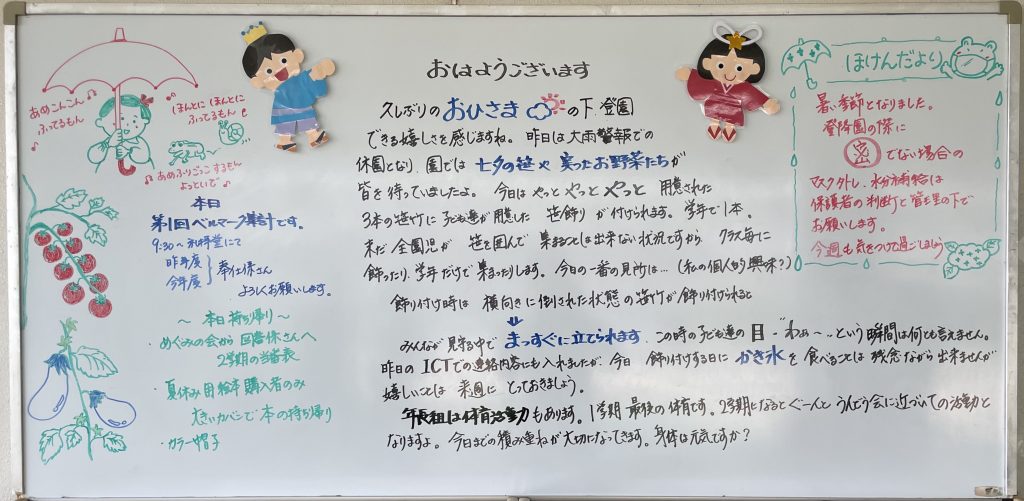 あめこんこん
ふってるもん
ほんとに ほんとに
ふってるもん
あめふりごっこするもん
よっといで
本日
第1回ベルマーク集計です。
9:30〜 礼拝堂にて
昨年度
今年度
奉仕係さん
よろしくお願いします。
〜 本日持ち帰り 〜
・めぐみの会から 図書係さんへ
2学期の当番表
・夏休み用絵本購入者のみ
大きいカバンで本の持ち帰り
・カラー帽子
おはようございます
久しぶりの おひさま の下、登園
できる嬉しさを感じますね。昨日は大雨警報での
休園となり、園では 七夕の笹や 実ったお野菜たちが
皆を待っていましたよ。今日はやっと やっと やっと 用意された
3本の笹竹に子ども達が用意した 笹飾りが付けられます。学年で1本。
未だ 全園児が 笹を囲んで 集まることは出来ない状況ですから クラス毎に
飾ったり、学年だけで集まったりします。今日の一番の見所は…(私の個人的興味?)
飾り付け時は 横向きに倒された状態の笹竹が飾り付けられると
みんなが見守る中で まっすぐに立てられます。この時の子ども達の目・"わぁ〜…という瞬間は何とも言えません。
昨日の ICTでの連絡内容にも入れましたが、今日 飾り付けする日に かき氷を 食べることは 残念ながら出来ませんが
嬉しいことは 来週に とっておきましょう。
年長組は体育活動もあります。1学期 最後の体育です。2学期になるとぐーんと うんどう会に近づいての活動と
なりますよ。今日までの積み重ねが大切になってきます。身体は元気ですか?
ほけんだより
暑い季節となりました。
登降園の際に
密 でない場合の
マスク外し、水分補給は
保護者の判断と管理の下で
お願いします。
今週も気をつけて過ごしましょう